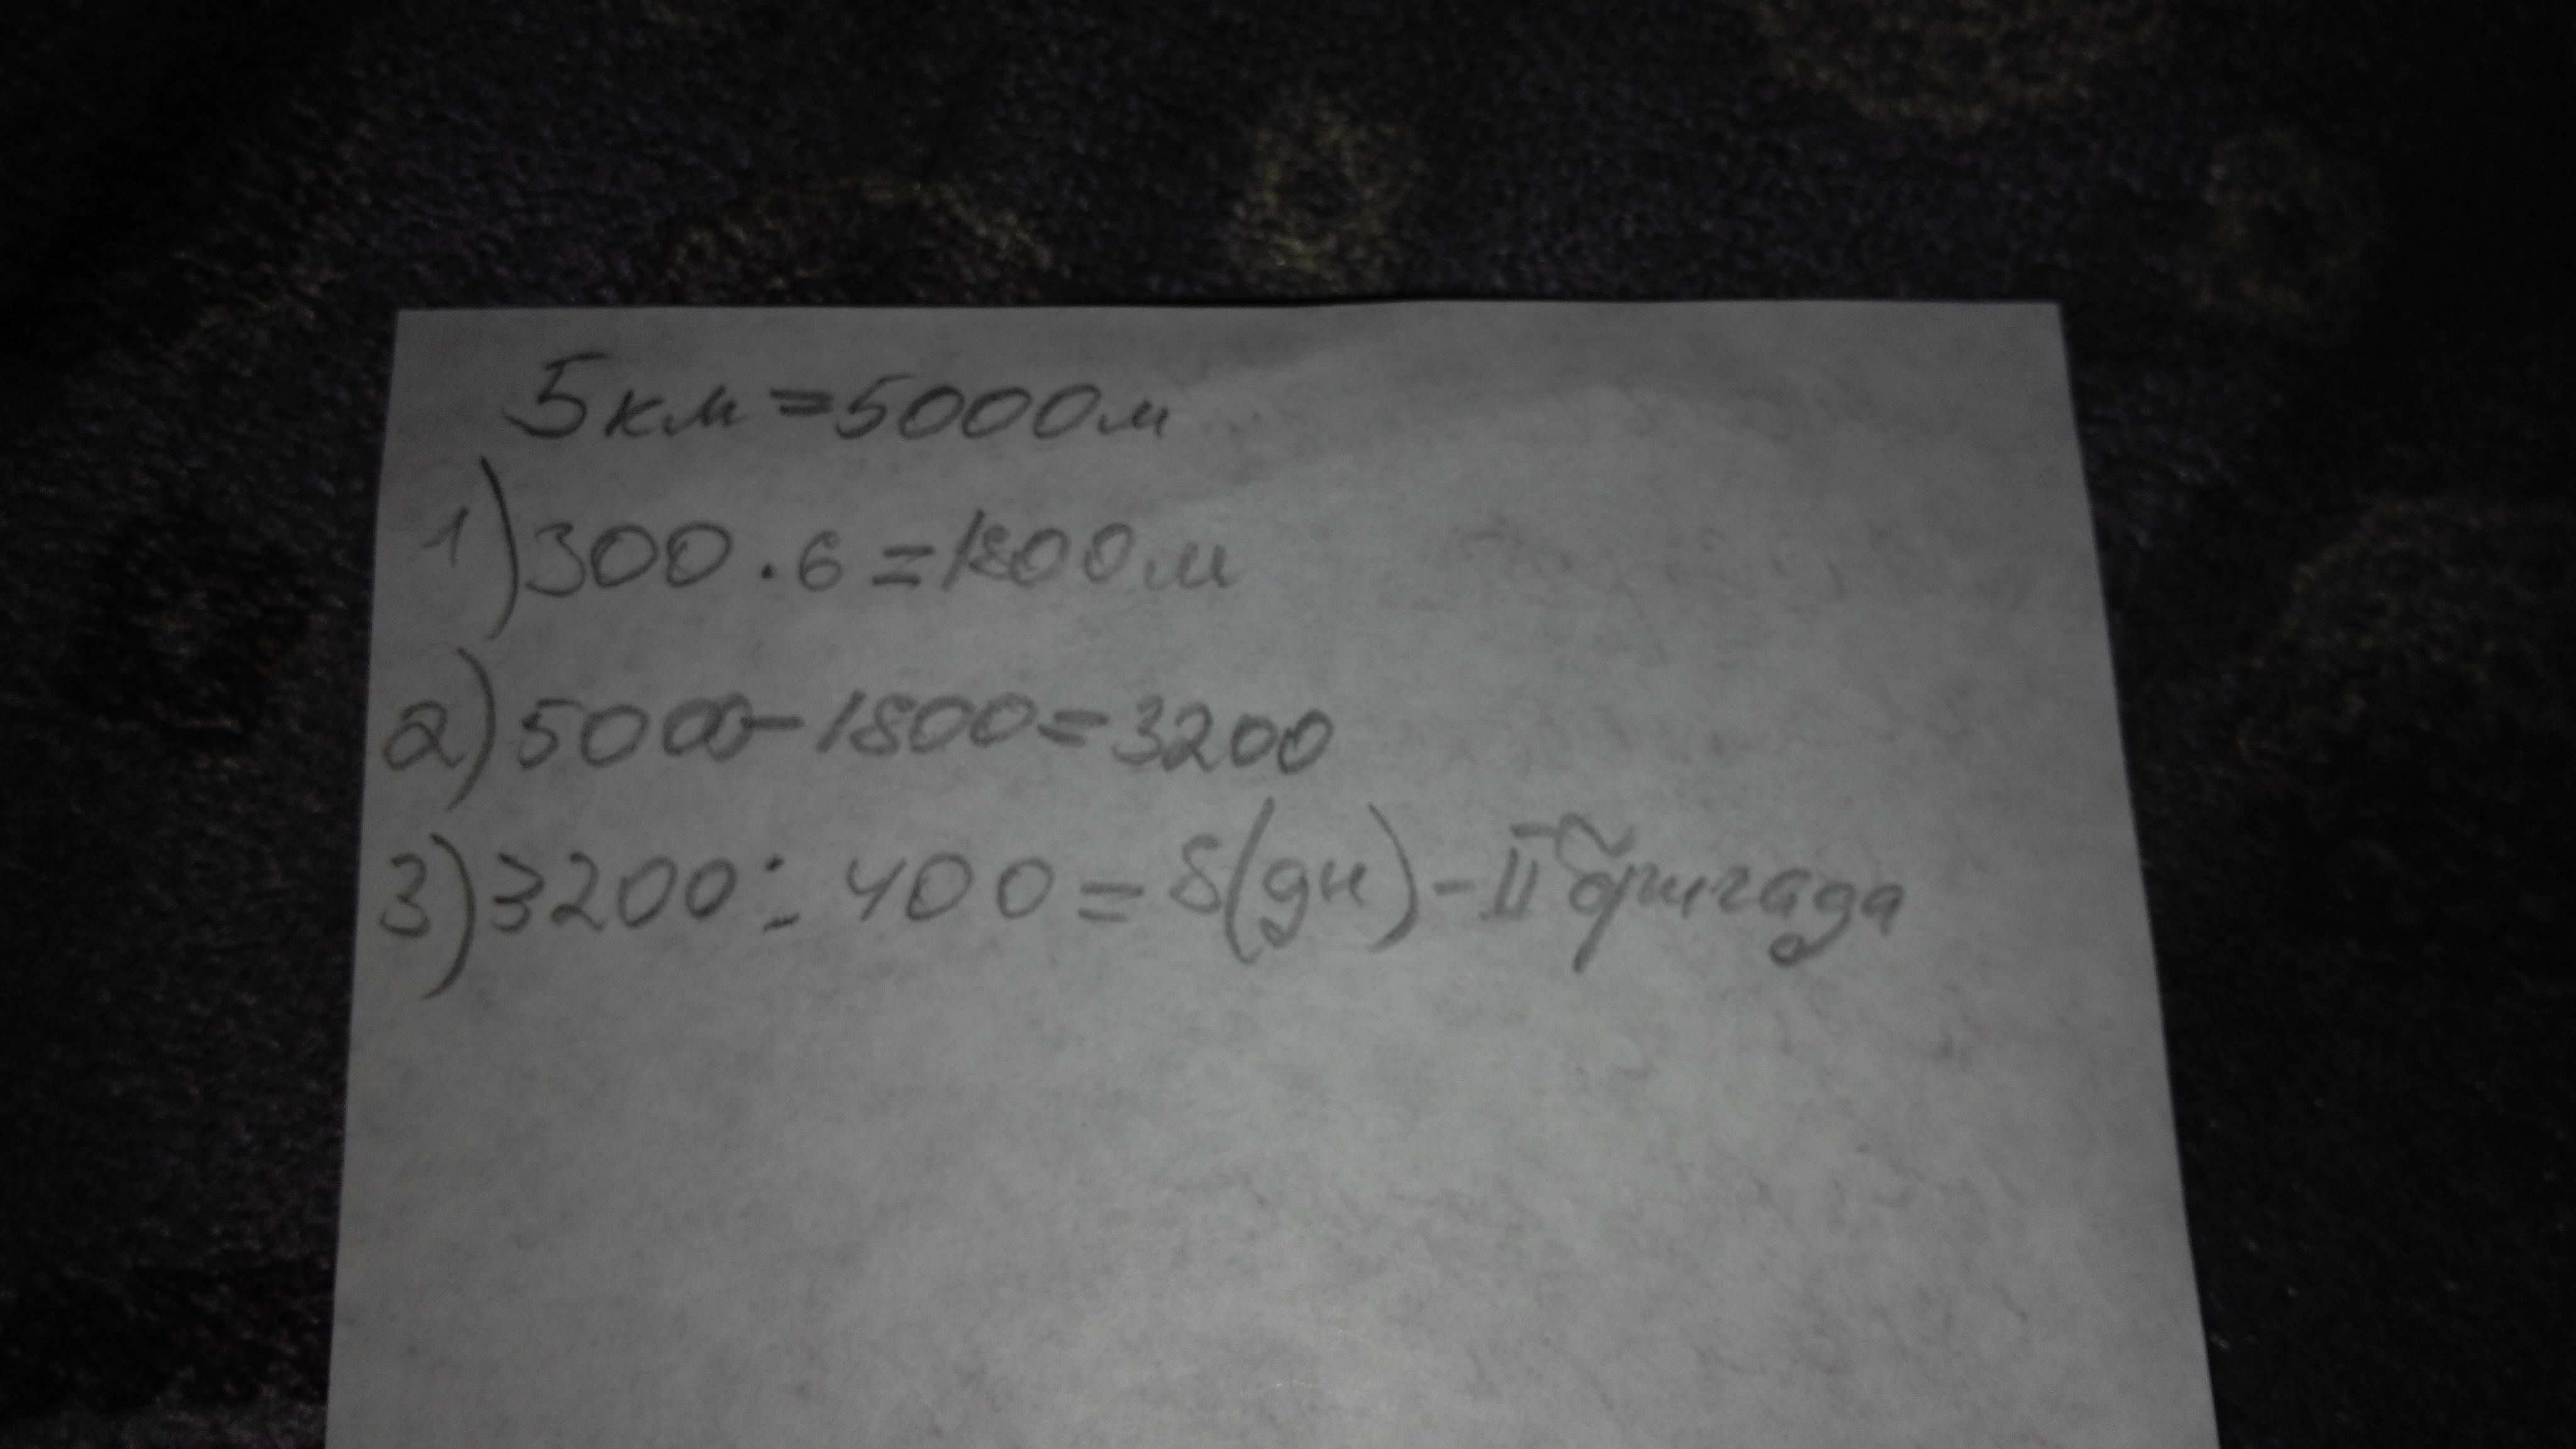 5км=5000м
1)300·6=1800м
2)5000-1800=3200
3)3200:400=8(дн)-II бригада